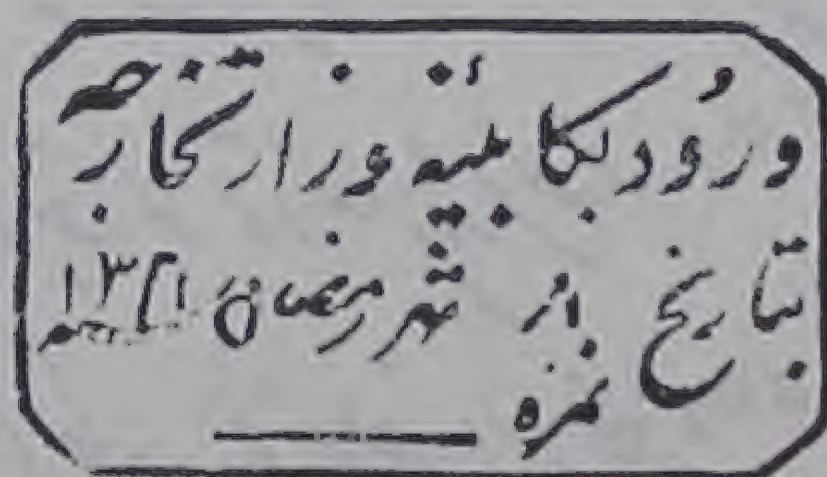 ورُود بکابینه وزارتخارجه
بتاریخ شهر رمضان ۱۳۲۱
نمره